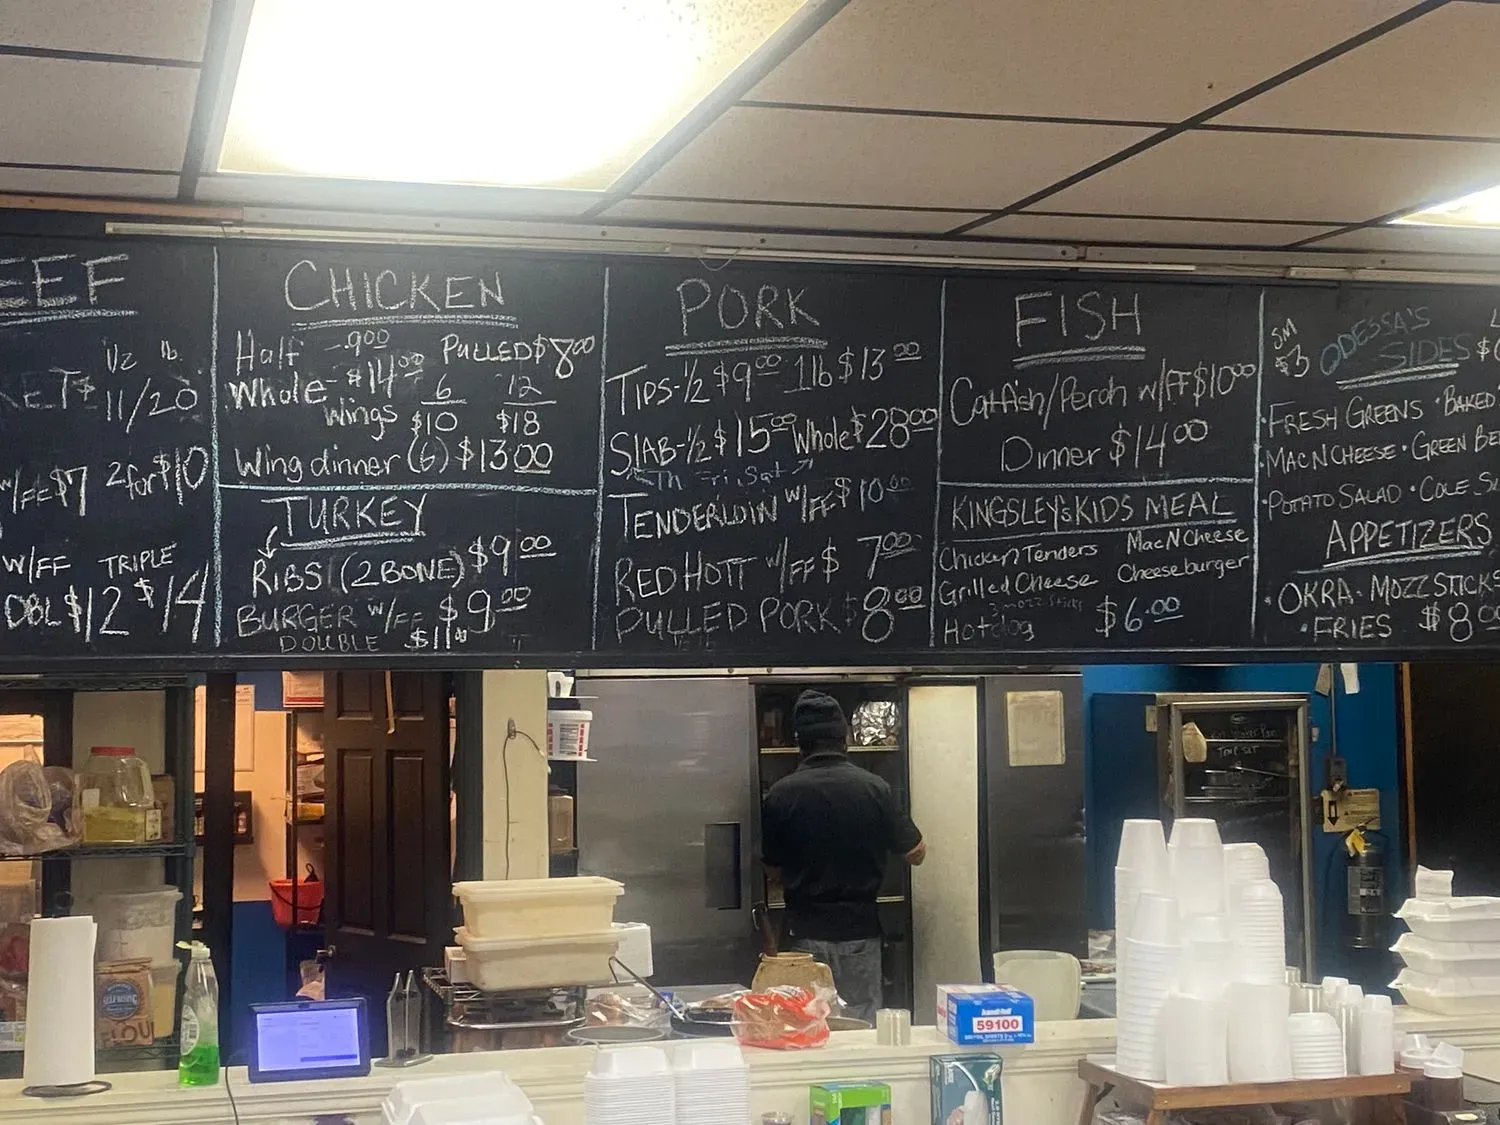 EEF
1/2 lb.
KET $ 11/20
W/FF $7 2 for $10
W/FF TRIPLE
DBL $12 $14
CHICKEN
Half - 9.00 PULLED $8.00
Whole - $14.00 6 12
Wings $10 $18
Wing dinner (6) $13.00
TURKEY
RIBS (2 BONE) $9.00
BURGER W/FF $9.00
DOUBLE $11.00
PORK
TIPS - 1/2 $9.00 1lb $13.00
SLAB - 1/2 $15.00 Whole $28.00
Th Fri. Sat
TENDERLOIN W/FF $10.00
RED HOTT W/FF $7.00
PULLED PORK $8.00
FISH
Catfish/Perch W/FF $10.00
Dinner $14.00
KINGSLEY'S KIDS MEAL
Chicken Tenders Mac N Cheese
Grilled Cheese Cheeseburger
3 mozz sticks
Hotdog $6.00
SM
$3 ODESSA'S
SIDES
• FRESH GREENS • BAKED
• MAC N CHEESE • GREEN BE
• POTATO SALAD • COLE S
APPETIZERS
• OKRA • MOZZ STICKS
• FRIES $8.00
SELF RISING
FLOU
59100